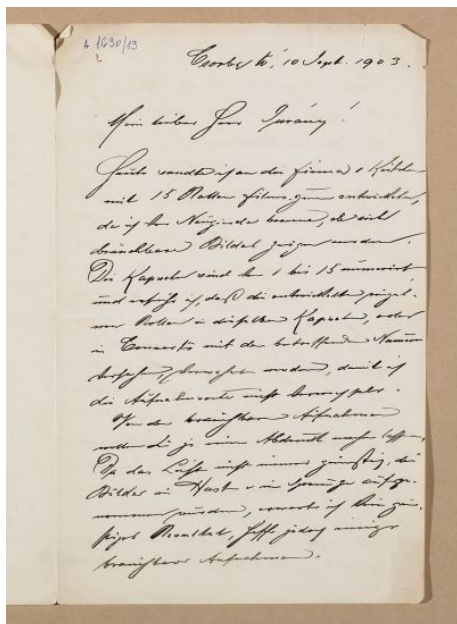 A 1630/13
2
Csorba tó, 10 Sept. 1903.
Mein lieber Herr Divány!
Heute sandte ich an die Firma 1 Kistchen
mit 15 Rollen Films zum entwickeln,
da ich vor Neugierde brenne, ob sich
brauchbare Bilder zeigen werden.
Die Kapseln sind von 1 bis 15 numerirt
und ersuche ich, daß die entwickelten
Rollen in dieselben Kapseln, oder
in Couverts mit den betreffenden Namen
versehen, werden, damit ich
die Aufnahmsorte nicht verwechsle.
Von den brauchbaren Aufnahmen
wollen Sie je einen Abdruck machen lassen.
Da das Licht nicht immer günstig, die
Bilder in Hast u. in aufge-
nommen wurden, erwarte ich kein
Resultat, hoffe jedoch einige
brauchbare Aufnahmen.